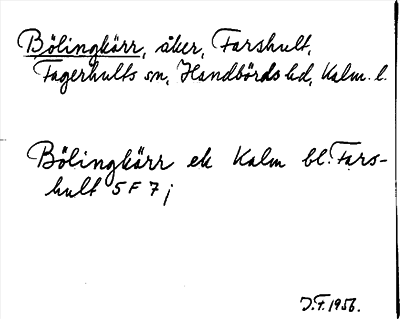 Bölingkärr, åker, Farshult,
Fagerhults sn, Handbörds hd, Kalm. l.
Bölingkärr ek Kalm bl. Fars-
hult 5 F 7 j
J.F. 1956.